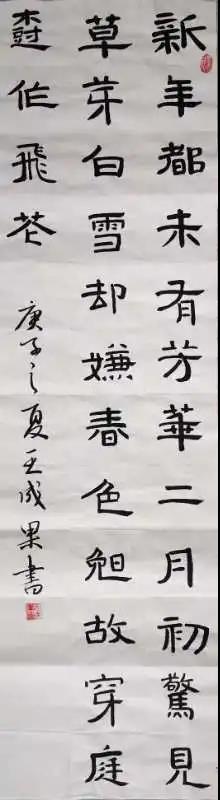 新年都未有芳華二月初驚見
草芽白雪却嫌春色晚故穿庭
樹作飛花
庚子之夏王成果書